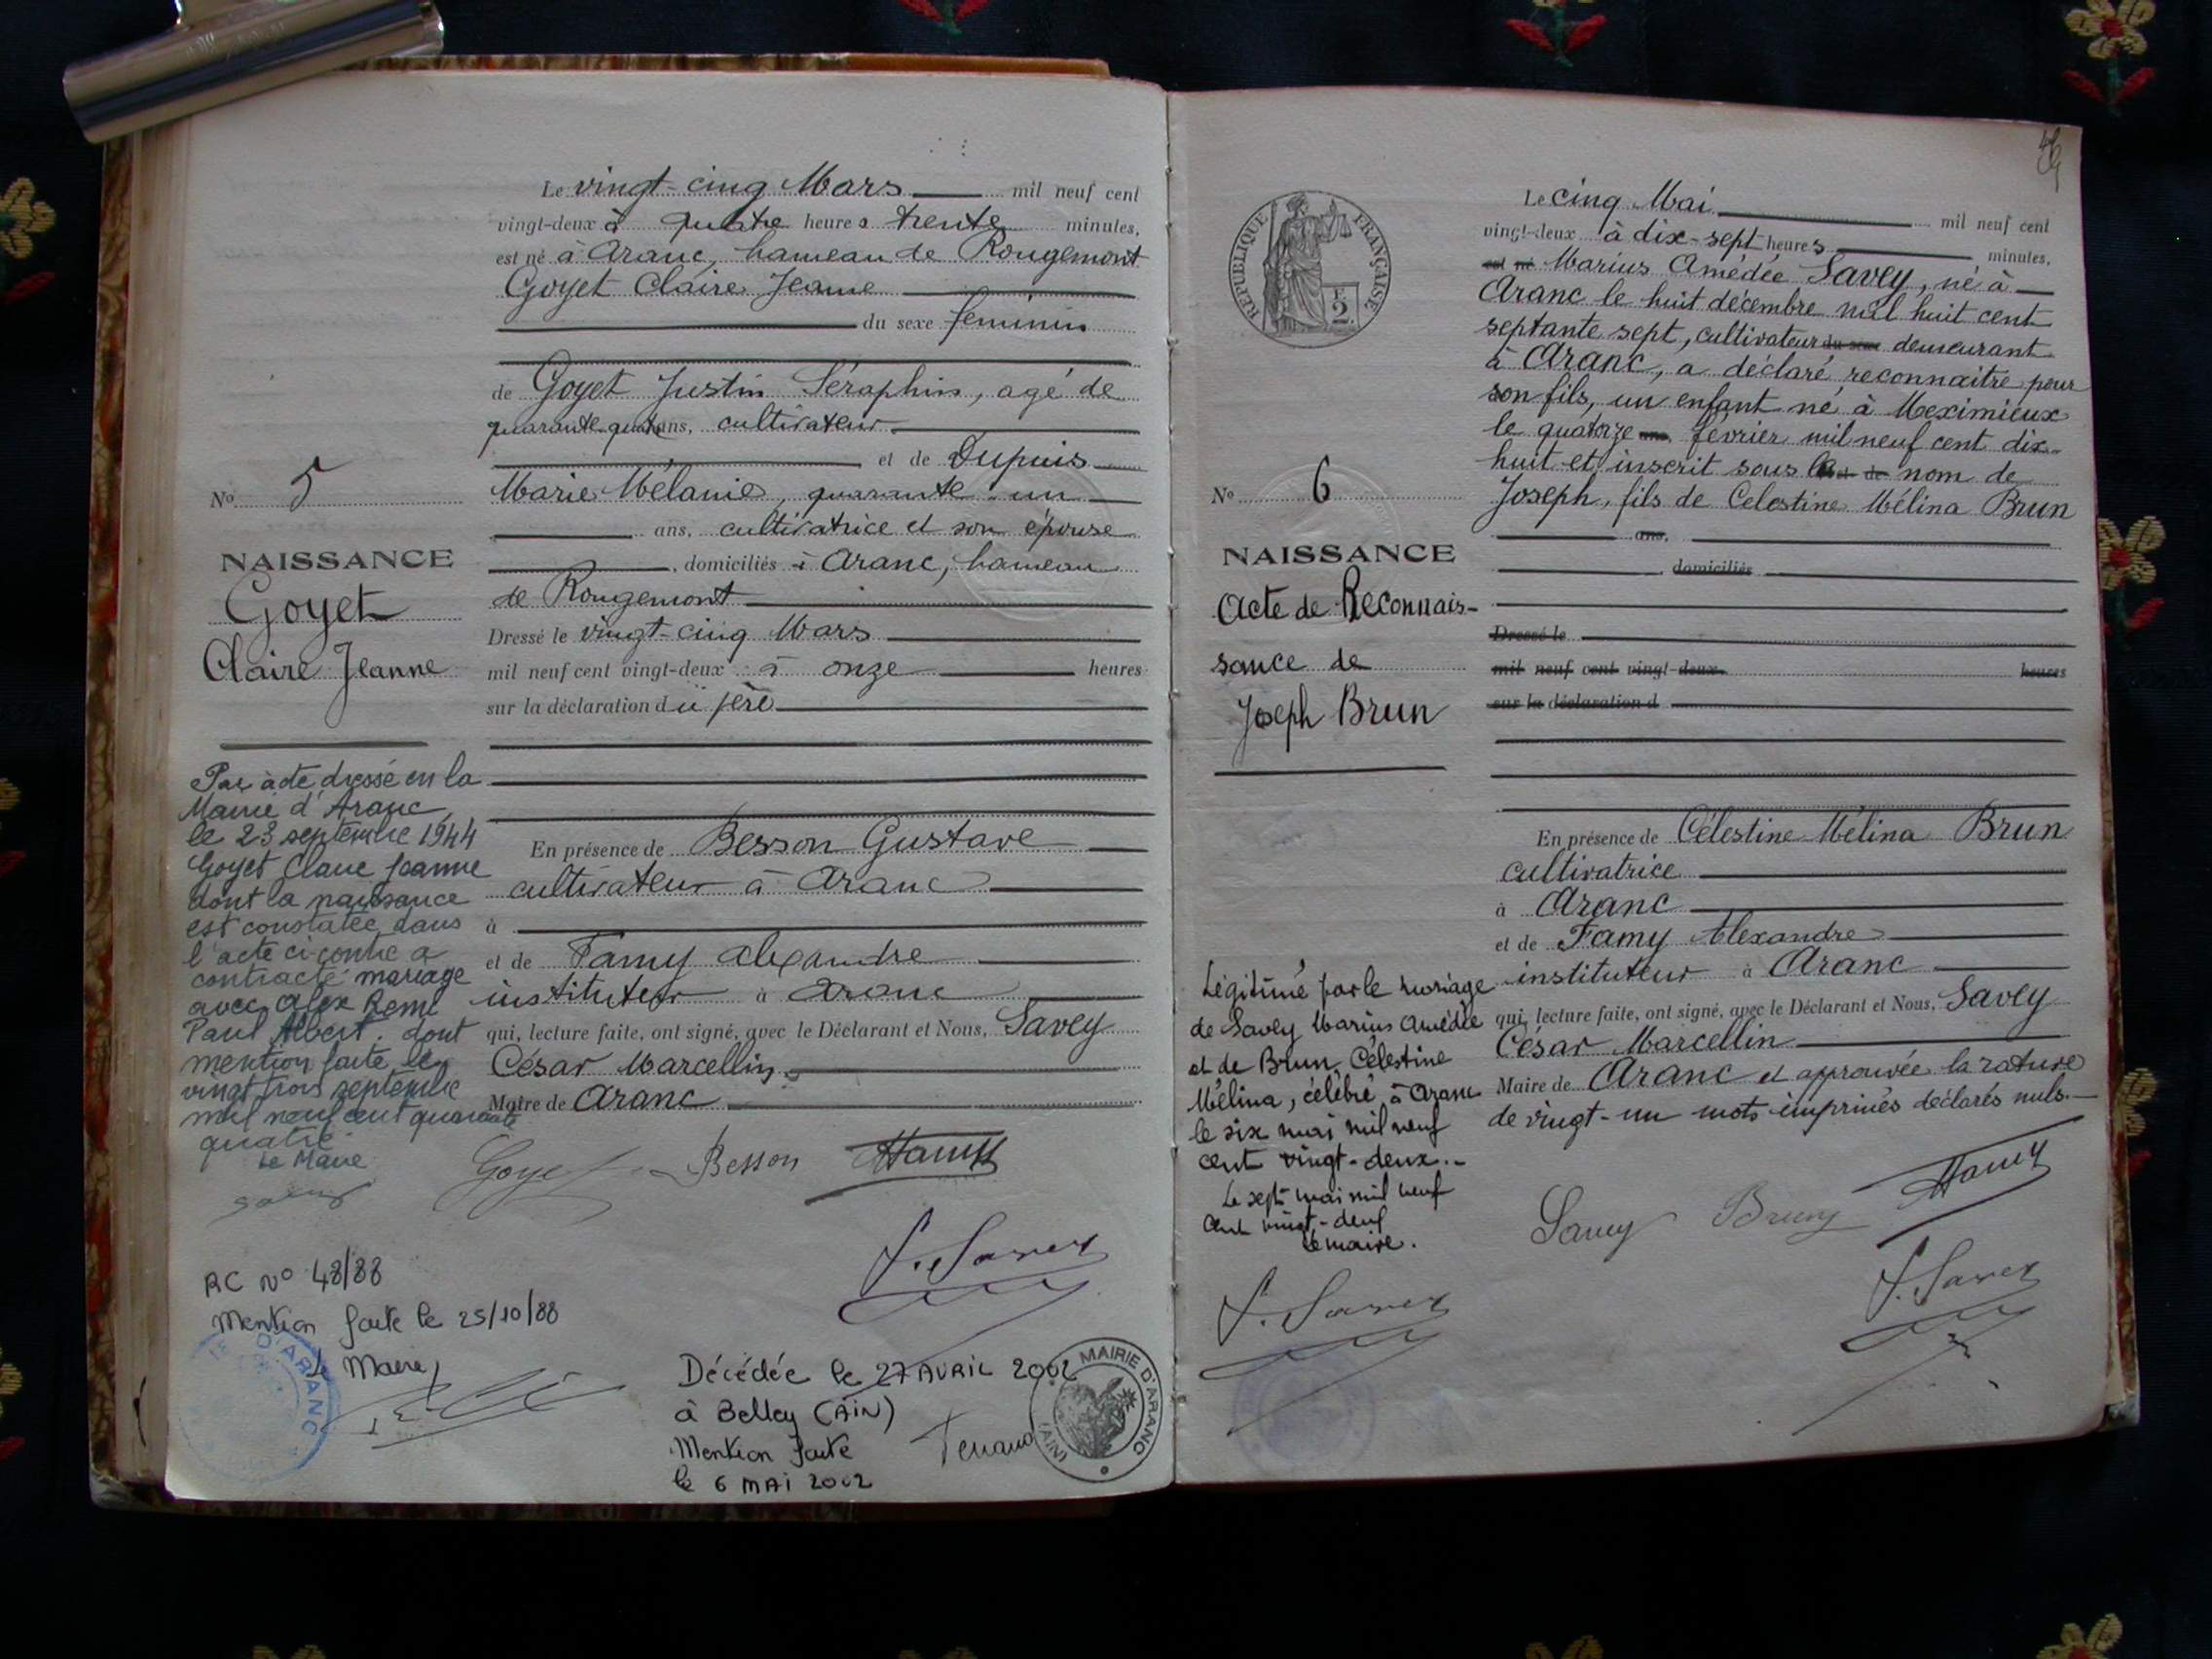 Le vingt-cinq Mars mil neuf cent
vingt-deux à quatre heures trente minutes,
est né à Aranc, hameau de Rougemont
Goyet Claire Jeanne
du sexe féminin
de Goyet Justin Séraphin, agé de
quarante-quatre ans, cultivateur
et de Dupuis
Marie Mélanie, quarante-un
ans, cultivatrice et son épouse
, domiciliés à Aranc, hameau
de Rougemont
Dressé le vingt-cinq Mars
mil neuf cent vingt-deux à onze heures
sur la déclaration du père
En présence de Besson Gustave
cultivateur à Aranc
à
et de Famy Alexandre
instituteur à Aranc
qui, lecture faite, ont signé, avec le Déclarant et Nous, Savey
César Marcellin
Maire de Aranc
Goyet Besson Famy
Savey
No 5
NAISSANCE
Goyet
Claire Jeanne
Par acte dressé en la
Mairie d'Aranc
le 23 septembre 1944
Goyet Claire Jeanne
dont la naissance
est constatée dans
l'acte ci-contre a
contracté mariage
avec Alex René
Paul Albert. dont
mention faite le
vingt trois septembre
mil neuf cent quarante
quatre.
Le Maire
RC No 48/88
Mention faite le 25/10/88
Le Maire,
D'ARANC
Décédée le 27 AVRIL 2002
à Belley (AIN)
Mention faite
le 6 MAI 2002
MAIRIE D'ARANC
(AIN)
RÉPUBLIQUE FRANÇAISE
2
Le cinq Mai mil neuf cent
vingt-deux à dix-sept heures minutes,
est né Marius Amédée Savey, né à
Aranc le huit décembre mil huit cent
septante sept, cultivateur du sexe demeurant
à Aranc, a déclaré reconnaitre pour
son fils, un enfant né à Meximieux
le quatorze ans, février mil neuf cent dix-
huit et inscrit sous le et de nom de
Joseph, fils de Celestine Mélina Brun
ans,
, domiciliés
Dressé le
mil neuf cent vingt-deux heures
sur la déclaration d
En présence de Célestine Mélina Brun
cultivatrice
à Aranc
et de Famy Alexandre
instituteur à Aranc
qui, lecture faite, ont signé, avec le Déclarant et Nous, Savey
César Marcellin
Maire de Aranc et approuvée la rature
de vingt-un mots imprimés déclarés nuls.
Savey Brun Famy
Savey
No 6
NAISSANCE
Acte de Reconnais-
sance de
Joseph Brun
Légitimé par le mariage
de Savey Marius Amédée
et de Brun Célestine
Mélina, célébré à Aranc
le six mai mil neuf
cent vingt-deux.-
Le sept mai mil neuf
cent vingt-deux
Le maire.
Savey